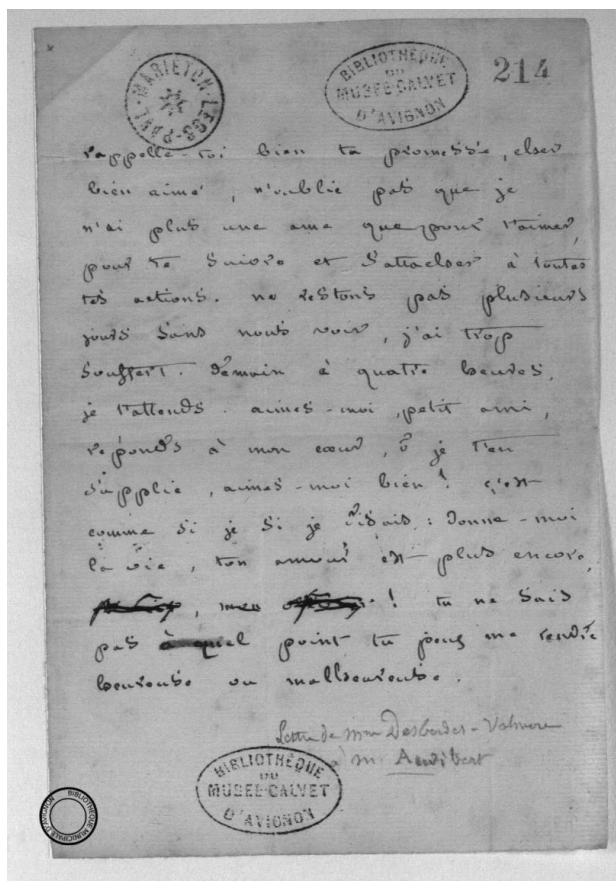 PAUL MARIETON - LEGS -
BIBLIOTHÈQUE
DU
MUSÉE-CALVET
D'AVIGNON
214
rappelle-toi bien ta promesse, cher
bien aimé, n'oublie pas que je
n'ai plus une ame que pour t'aimer,
pour te suivre et s'attacher à toutes
tes actions. ne restons pas plusieurs
jours sans nous voir, j'ai trop
souffert. demain à quatre heures,
je t'attends. aimes-moi, petit ami,
réponds à mon cœur, ô je t'en
supplie, aimes-moi bien! c'est
comme si je si je disais : donne-moi
la vie, ton amour est plus encore,
, mon ! tu ne sais
pas à quel point tu peux me rendre
heureuse ou malheureuse.
Lettre de Mme Desbordes-Valmore
à Mr Audibert
BIBLIOTHÈQUE
DU
MUSÉE-CALVET
D'AVIGNON
BIBLIOTHEQUE MUNICIPALE D'AVIGNON